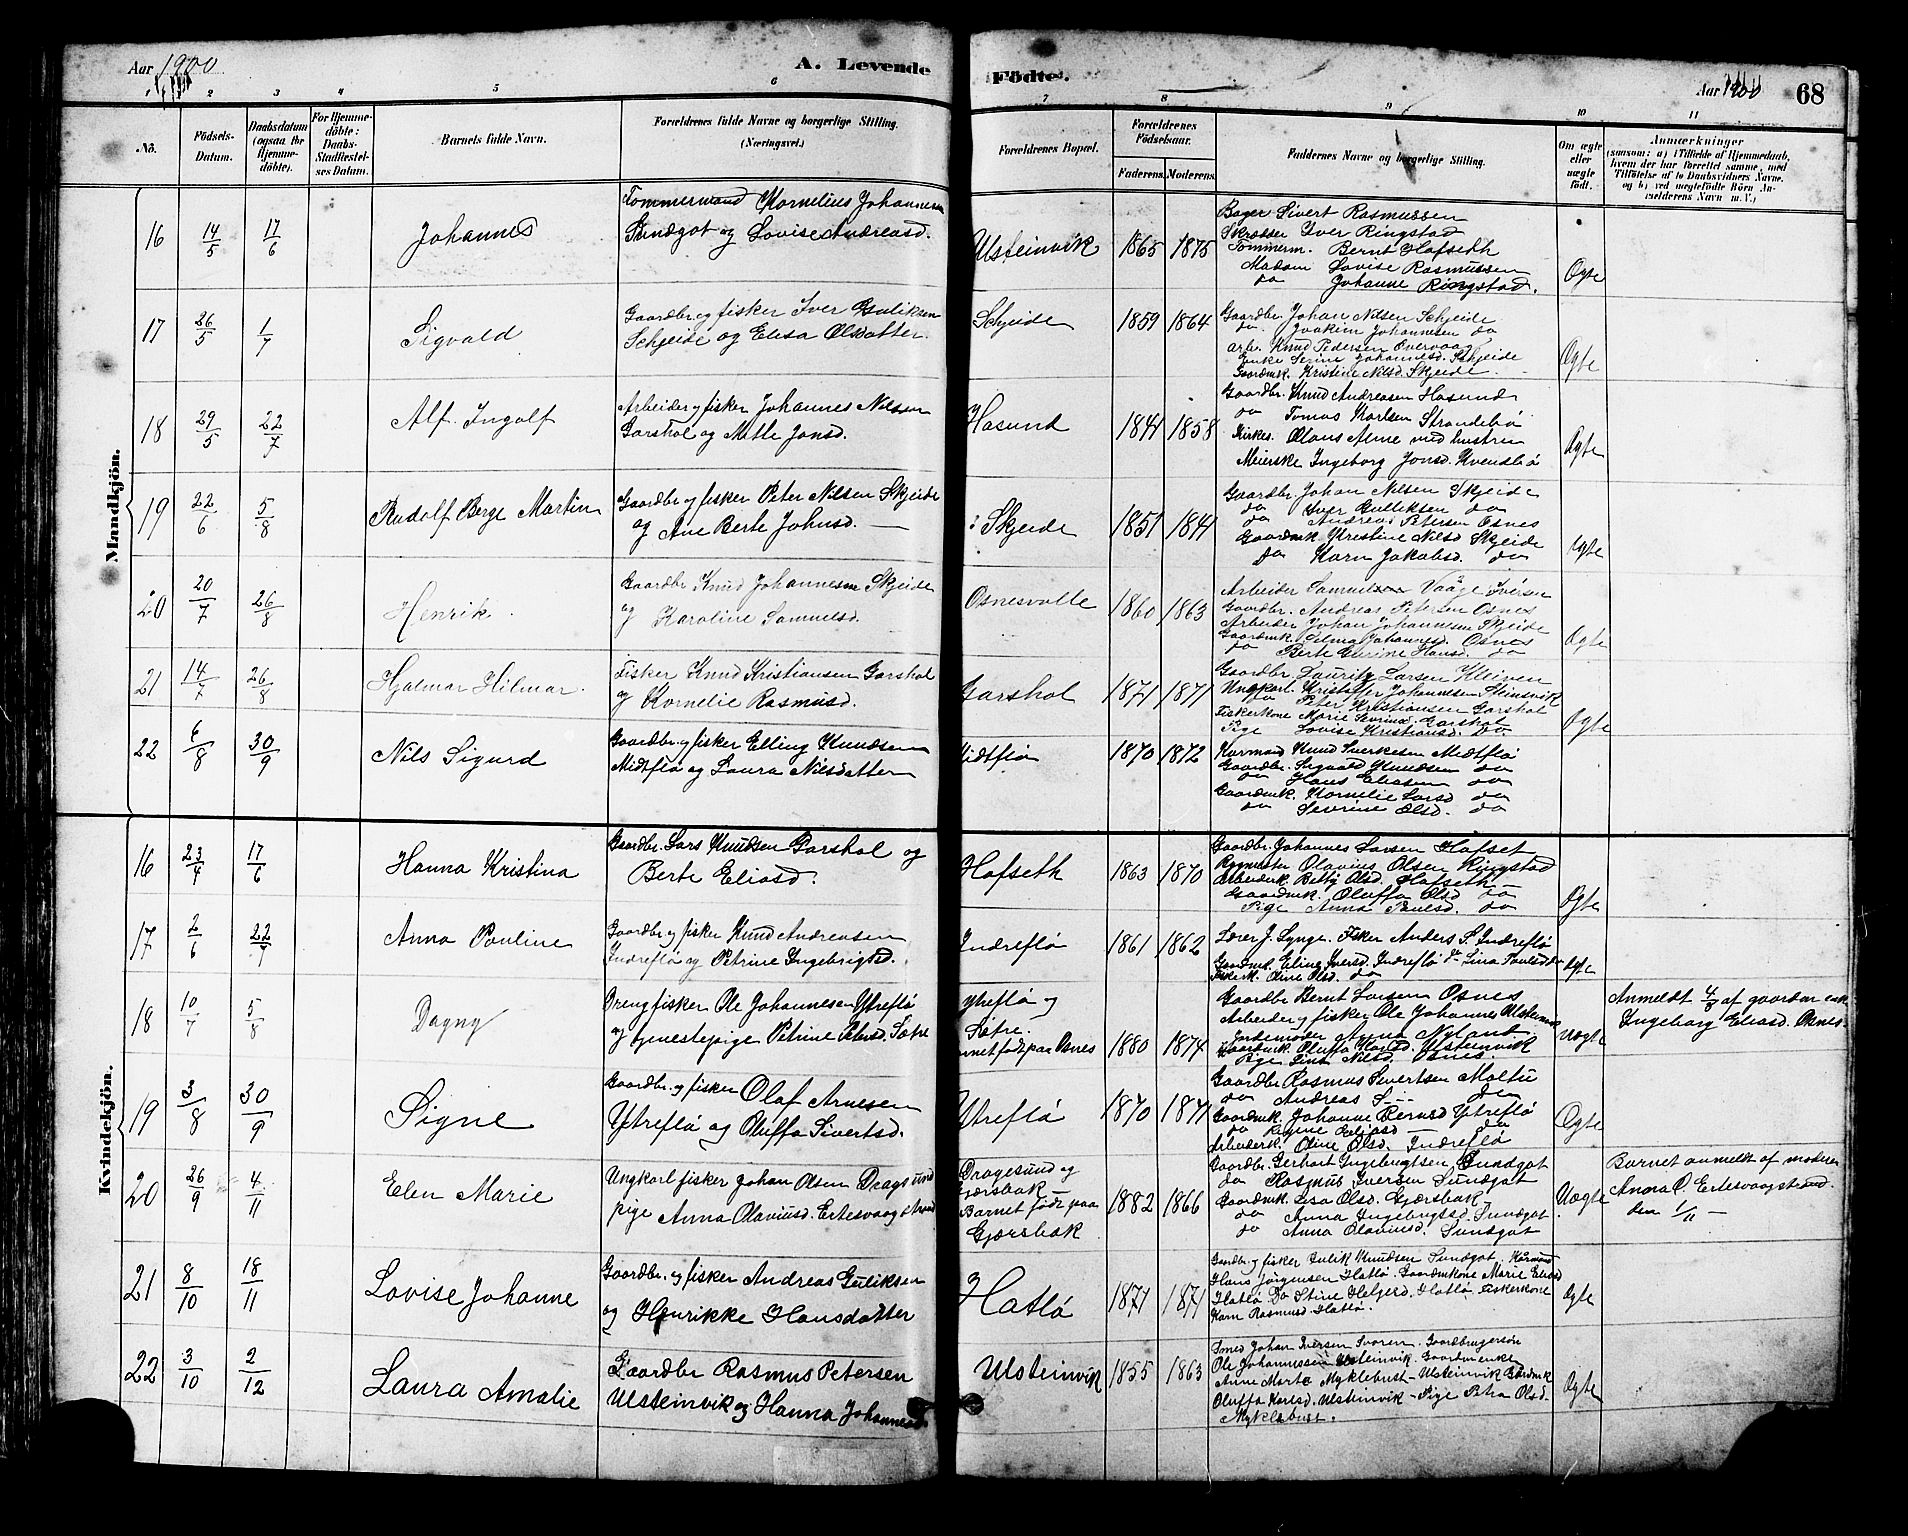 Aar 1900.
A. Levende
Födte.
Aar 1900
68
1 2 3 4 5 6 7 8 9 10 11
No.
Födsels-Datum.
Daabsdatum (ogsaa for Hjemme-döbte).
For Hjemme-döbte: Daabs-Stadfæstel-ses Datum.
Barnets fulde Navn.
Forældrenes fulde Navne og borgerlige Stilling.
(Næringsvei.)
Forældrenes Bopæl.
Forældrenes Födselsaar.
Faderens.
Moderens.
Faddernes Navne og borgerlige Stilling.
Om ægte eller uægte födt.
Anmærkninger
(saasom: a) i Tilfælde af Hjemmedaab,
hvem der har forrettet samme, med
Tilföielse af to Daabsvidners Navne.
og b) ved uægtefödte Börn An-
melderens Navn m. V.)
Mandkjön.
16 14/5 17/6 Johannes
Tommermand Kornelius Johannesen
Sundgot og Lovise Andreasd.
Ulsteinvik 1865 1875
Bager Sivert Rasmussen
Skrædder Iver Ringstad
Tommerm. Bernt Hafseth
Madam Lovise Rasmussen
do Johanne Ringstad.
Ægte
17 26/5 1/7 Sigvald
Gaardbr og fisker Iver Guliksen
Schjeide og Elisa Olsdatter.
Schjeide 1859 1864
Gaardbr. Johan Nilsen Schjeide
do. Joakim Johannesen do
Arb. Knud Pedersen Overvaag
Enke Serine Johannesd. Skjeide
Gaardmk. Kristine Nilsd. Skjeide.
Ægte
18 29/5 22/7 Alf Ingolf
Arbeider og fisker Johannes Nilsson
Garshol og Mette Jonsd.
Hasund 1844 1858
Gaardbr. Knud Andreasen Hasund
do Tomas Karlsen Strandebö
Kirkes. Olaus Alme med hustru
Meierske Ingeborg Jonsd. Kvendbö
Ægte
19 22/6 5/8 Rudolf Berge Martin
Gaardbr og fisker Peter Nilsen Skjeide
og Ane Berte Johnsd. —
Skjeide 1851 1844
Gaardbr Johan Nilsen Skjeide
do Iver Gulliksen do
do Andreas Petersen Osnes
Gaardmk Kristine Nilsd Skjeide
do Karn Jakobsd. do
Ægte
20 20/7 26/8 Henrik.
Gaardbr Knud Johannesen Skjeide
og Karoline Samuelsd.
Osnesvolle 1860 1863
Arbeider Samuelsen Vaage Iversen
Gaardbr. Andreas Petersen Osnes
Arbeider Johan Johannesen Skjeide
Gaardmk. Selma Johannesd. Osnes
do Berte Elvrine Hansd. do
Ægte
21 14/7 26/8 Hjalmar Hilmar.
Fisker Knud Kristiansen Garshol
og Kornelie Rasmusd.
Garshol 1871 1871
Gaardbr Lauritz Larsen Kleiven
Ungkarl. Kristoffer Johannesen Steinsvik
do Peter Kristiansen Garshol
Fiskerkone Marie Severinsd. Garshol
Pige Lovise Kristiansd. do
Ægte
22 6/8 30/9 Nils Sigurd
Gaardbr. og fisker Elling Knudsen
Midtflø og Laura Nilsdatter
Midtflø 1870 1872
Karmand Knud Sverkesen Midtflø
Gaardbr. Sigvald Knudsen do
do Hans Eliasen do
Gaardmk. Kornelie Larsd do
do Severine Olsd. do
Kvindekjön.
16 23/4 17/6 Hanna Kristina
Gaardbr. Lars Knudsen Garshol og
Berte Eliasd.
Hafseth 1863 1870
Gaardbr. Johannes Larsen Hafset
Olavius Olsen Ringstad
Arbeidmk Betty Olsd. Hafseth
Gaardmk. Oluffa Olsd. do
Pige Anna Paulsd. do
Ægte
17 2/6 22/7 Anna Pauline
Gaardbr og fisker Knud Andreasen
Indreflø og Petrine Ingebrigtsd.
Indreflø 1861 1862
Lærer J. Lynge. Fisker Anders S. Indreflø
Gaardmk. Eline Iversd. Indreflø do Lina Paulsd do
Fiskerk. Oline Olsd. do
Ægte
18 10/7 5/8 Dagny
Dreng fisker Ole Johannesen Ytreflø
og tjenestepige Petrine Petersd. Sætre
Ytreflø og
Sætre.
Barnet født paa Osnes 1880 1874
Gaardbr Bernt Larsen Osnes
Arbeider og fisker Ole Johannes Ulsteinvik
Jordemoder Anna Nyland
Gaardmk. Oluffa Ulsteinvik
Pige Lina Nilsd. Osnes.
Uægte
Anmeldt 4/8 af gaardmandsenke
Ingeborg Eliasd. Osnes.
19 3/8 30/9 Signe
Gaardbr. og fisker Olaf Arnesen
Ytreflø og Oluffa Sivertsd.
Ytreflø 1870 1871
Gaardbr Rasmus Sivertsen Moltu
do Andreas S. — do
Gaardmk. Johanne Berntsd Ytreflø
do Regine Eliasd — do
Arbeiderk. Oline Olsd. Indreflø
Ægte
20 26/9 4/11 Elen Marie
Ungkarl fisker Johan Olsen Dragsund
pige Anna Olaviusd. Ertesvaagstrand
Dragesund og
Gjærsbak —
Barnet født paa
Gjærsbak 1882 1866
Gaardbr. Gerhart Ingebrigtsen Sundgot
do Rasmus Iversen Sundgot
Gaardmk. Lisa Olsd. Gjærsbak —
do Anna Ingebrigtsd. Sundgot.
do Anna Olaviusd. Sundgot
Uægte
Barnet anmeldt af moderen
Anna O. Ertesvaagstrand.
den 1/11 —
21 8/10 18/11 Lovise Johanne
Gaardbr. og fisker Andreas Guliksen
og Henrikke Hansdatter
Hatlø 1871 1871
Gaardbr og fisker Gulik Knudsen Sundgot. Kårmand
Hans Jørgensen Hatlø. Gaardmkone Marie Eliasd
Hatlø Do Stine Helgesd. Hatlø. Fiskerkone
Karn Rasmusd. Hatlø.
Ægte
22 3/10 2/12 Laura Amalie
Gaardbr Rasmus Petersen
Ulsteinvik og Hanna Johannesd.
Ulsteinvik 1855 1863
Smed Johan Iversen Svoren. Gaardbrugersøn
Ole Johannessen Ulsteinvik. Gaardmenke
Anne Marte Myklebust — Ulsteinvik Gaardmk
Oluffa Karlsd. Ulsteinvik — Pige Petra Olsd.
Myklebust.
Ægte